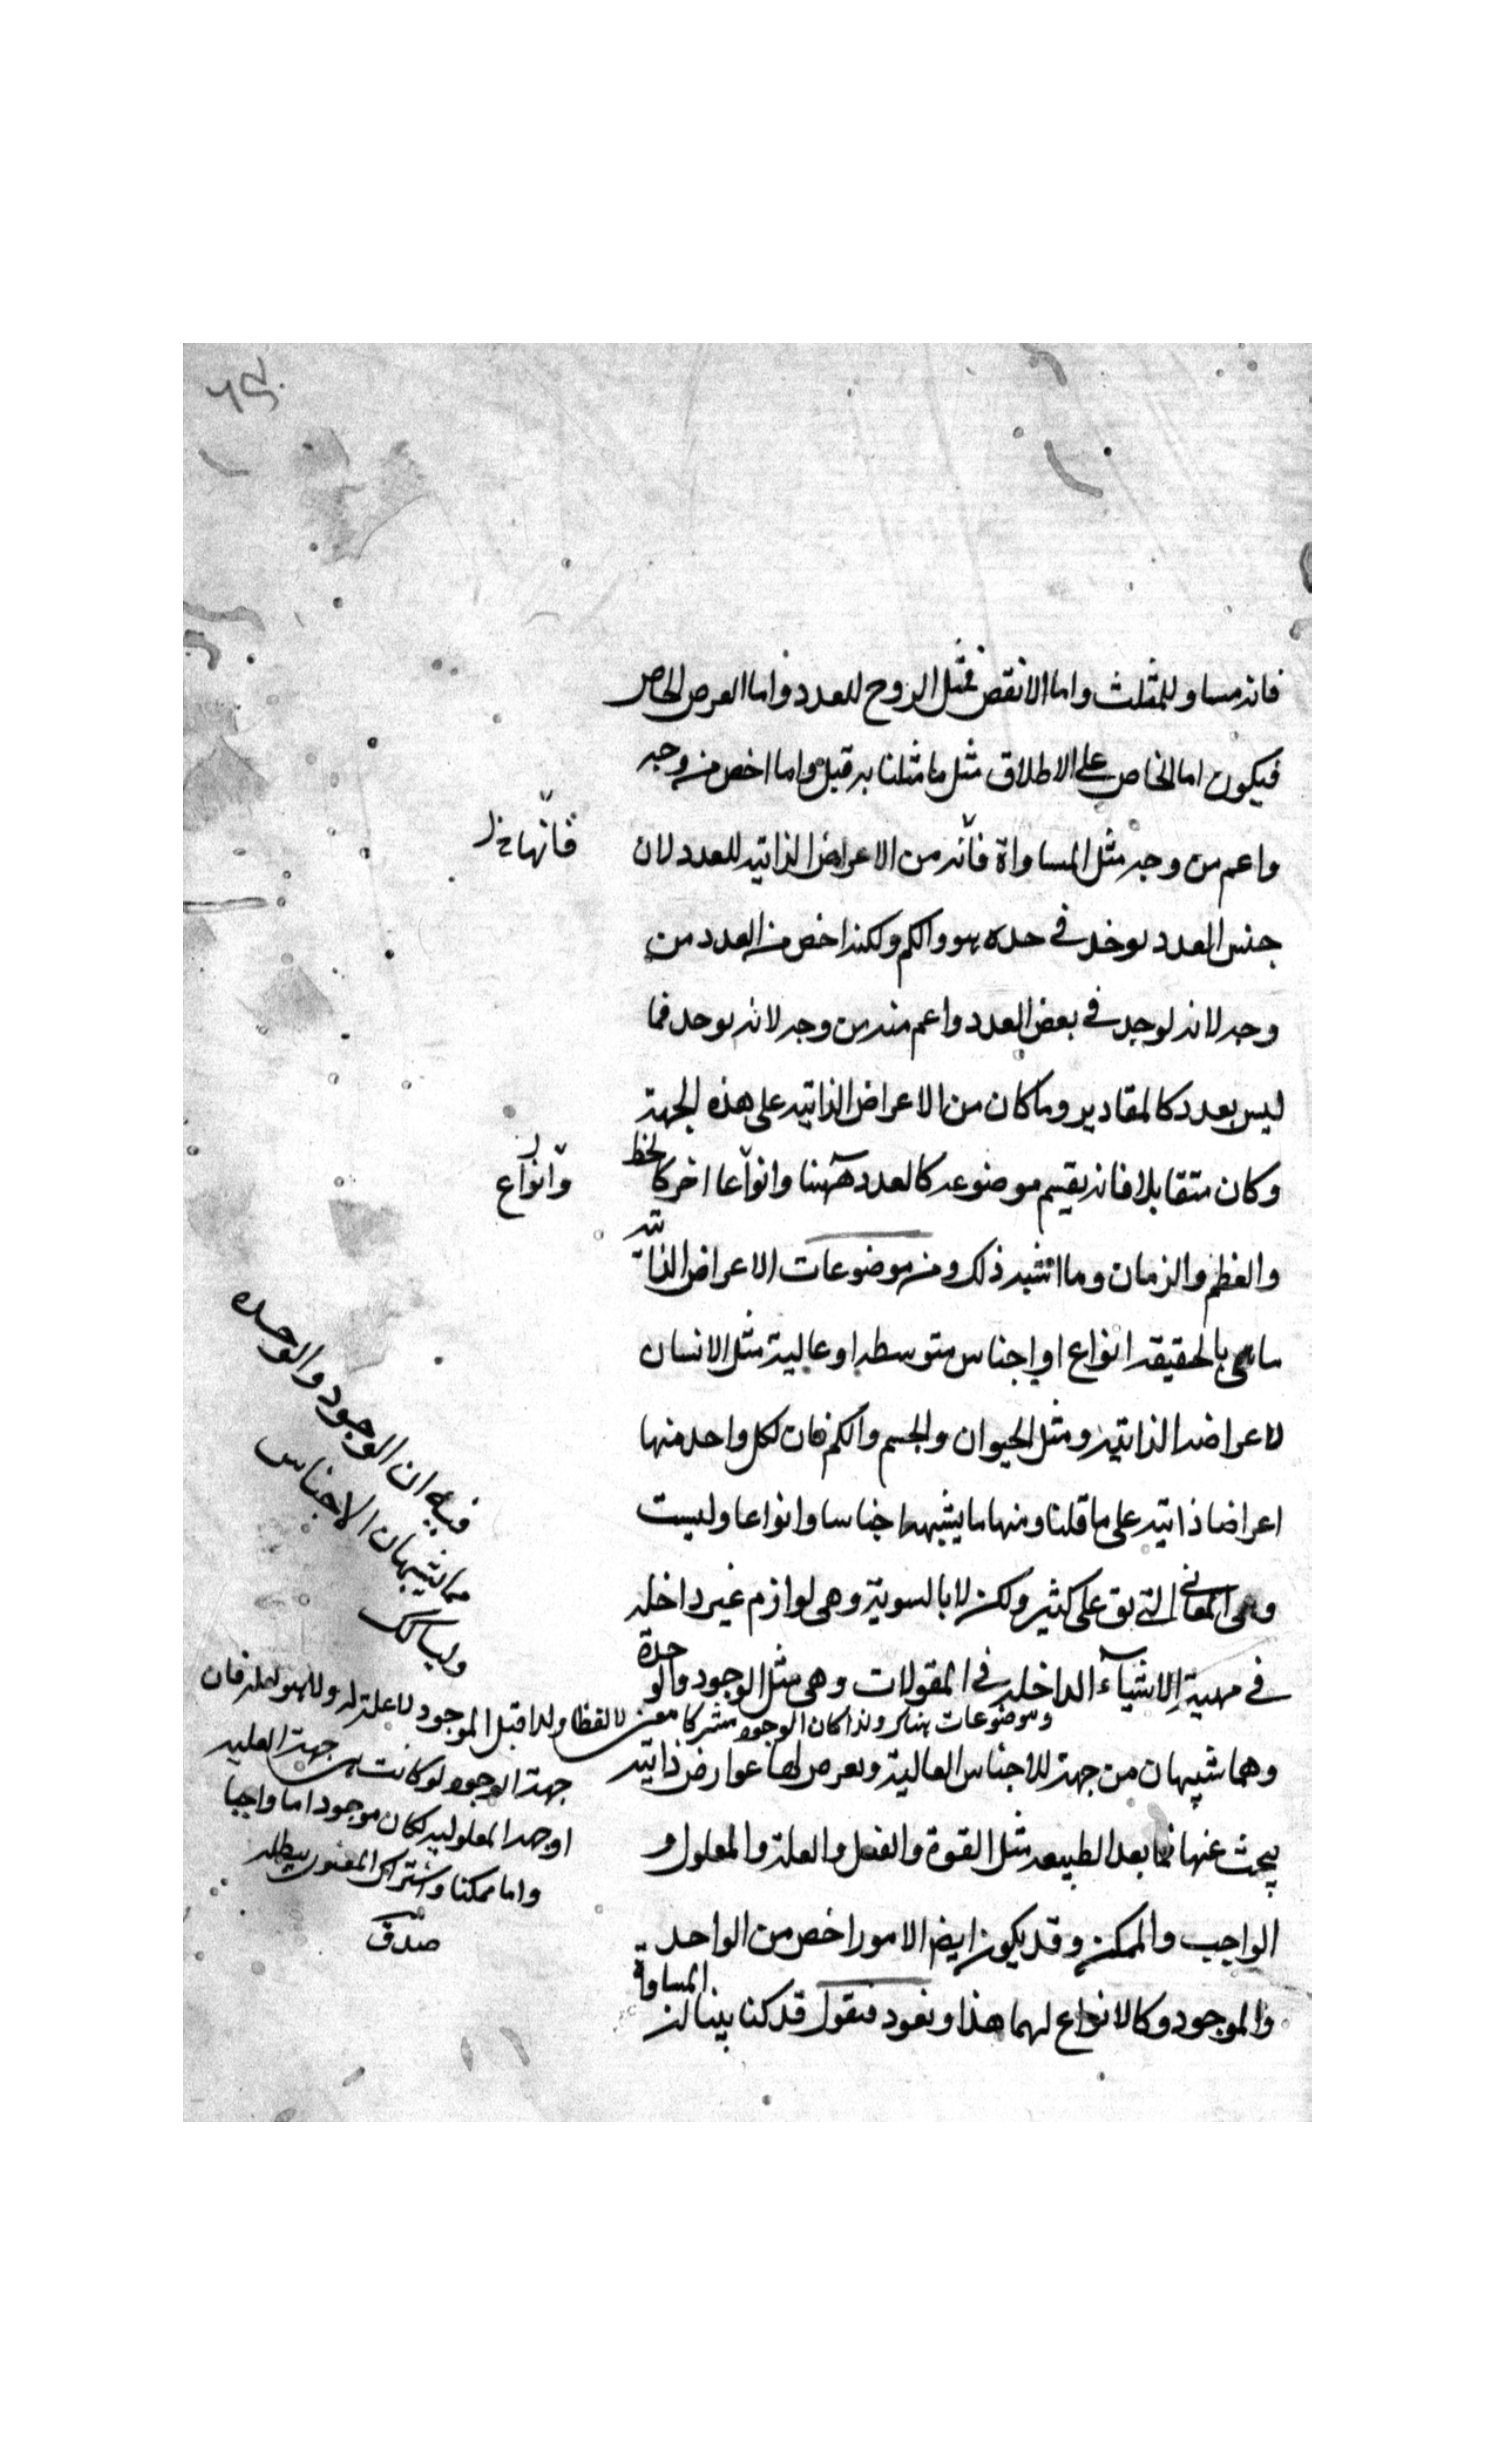 فانه مساو للمثلث واما الانقص فمثل الزوج للعدد واما العرض الخاص
فيكون اما الخاص على الاطلاق مثل ما مثلنا به قبل واما اخص من وجه
واعم من وجه مثل المساواة فانّه من الاعراض الذاتيه للعدد لان
فانّها خ ل
جنس العدد يوخذ في حده هو والكم ولكنه اخص من العدد من
وجه لانه يوجد في بعض العدد واعم منه من وجه لانه يوجد فيما
ليس بعدد كالمقادير وما كان من الاعراض الذاتيه على هذه الجهة
وكان متقابلا فانه يقيم موضوعه كالعدد ههنا وانواعا اخر كالخط
وانواع
والعظم والزمان وما اشبه ذلك ومن موضوعات الاعراض الذاتية
ما هي بالحقيقه انواع او اجناس متوسطه او عالية مثل الانسان
لاعراضه الذاتيه ومثل الحيوان والجسم والكم فان لكل واحد منها
اعراضا ذاتيه على ما قلنا ومنها ما يشبهها اجناسا وانواعا وليست
وهي المعاني التي تق على كثير ولكن لا بالسوية وهي لوازم غير داخله
في مهية الاشياء الداخله في المقولات وهي مثل الوجود والوحدة
وهما شبيهان من جهة للاجناس العالية ويعرض لها عوارض ذاتيه
يبحث عنها فيما بعد الطبيعه مثل القوة والفعل والعلة والمعلول و
الواجب والممكن وقد يكون ايض الامور اخص من الواحد
والموجود وكالانواع لهما هذا ونعود فنقول قد كنا بينا ان
المساوة
فيه ان الوجود والوحده
مما يشبهان الاجناس
وليسا كك
وموضوعات هناك ولذا كان الوجود مشتركا معنى لا لفظا ولذا قبل الموجود لا علة له وللهيو لعله فان
جهة الوجود لو كانت هي جهة العليه
او جهة المعلوليه لكان موجود اما واجبا
واما ممكنا واشتراك المعنوى يبطله
صدق